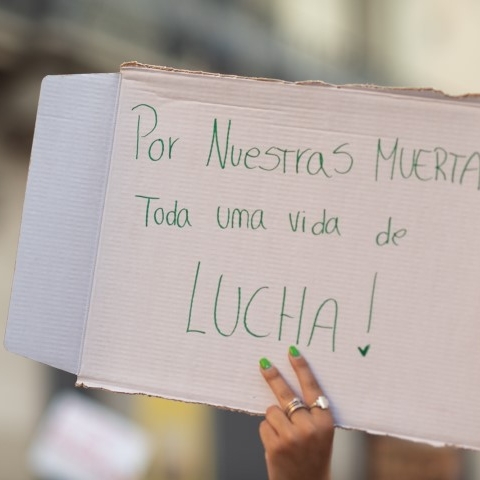 Por Nuestras MUERTA
Toda uma vida de
LUCHA!